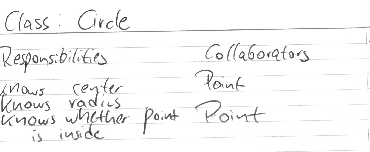 Class: Circle
Responsibilities Collaborators
knows center Point
knows radius
knows whether point Point
is inside